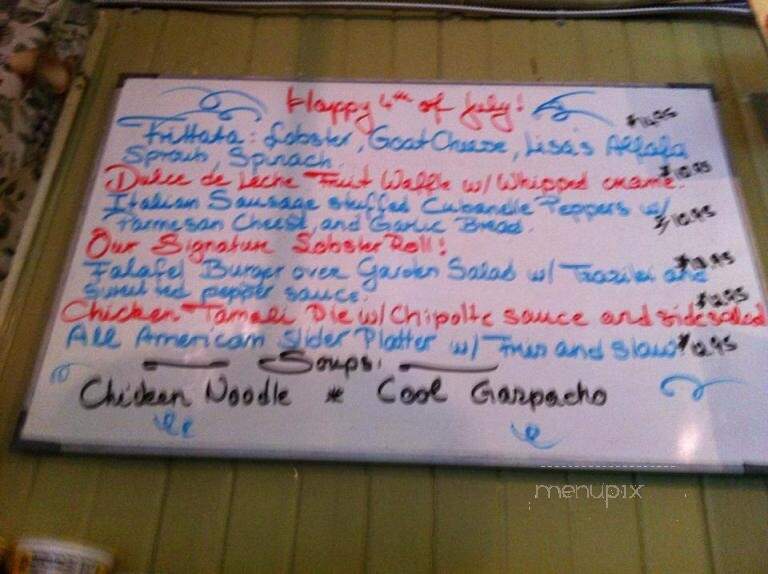 Happy 4th of July!
Frittata: Lobster, Goat Cheese, Lisa's Alfafa
Sprouts, Spinach.
Dulce de Leche Fruit Waffle w/ Whipped creame. $10.95
Italian Sausage stuffed Cubanelle Peppers w/
Parmesan Cheese, and Garlic Bread. $10.95
Our Signature Lobster Roll!
Falafel Burger over Garden Salad w/ Tzaziki and
Sweet red pepper sauce.
Chicken Tamali Pie w/ Chipolte sauce and side salad $12.95
All American Slider Platter w/ Fries and Slaw $12.95
Soups:
Chicken Noodle * Cool Gazpacho
menupix